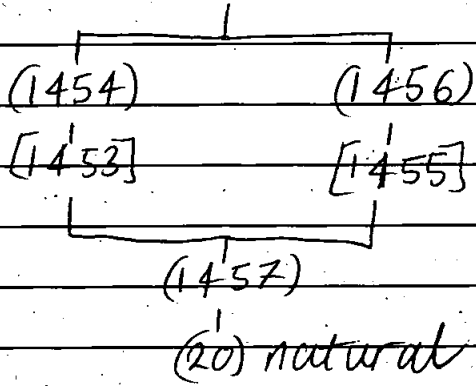 (1454) (1456)
[1453] [1455]
(1457)
(20) natural